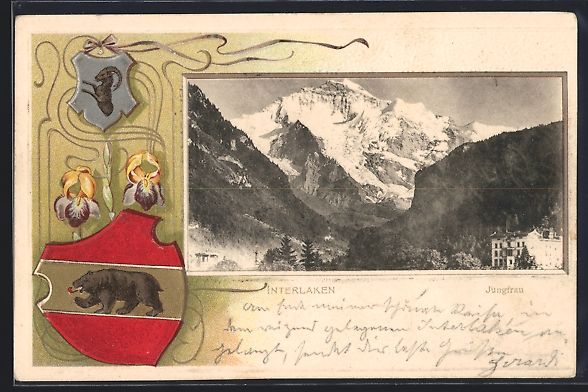 INTERLAKEN Jungfrau
Am Ende meiner schönen Reise, in
dem reizend gelegenen Interlaken, an-
gelangt, sendet dir beste Grüsse
Gerard